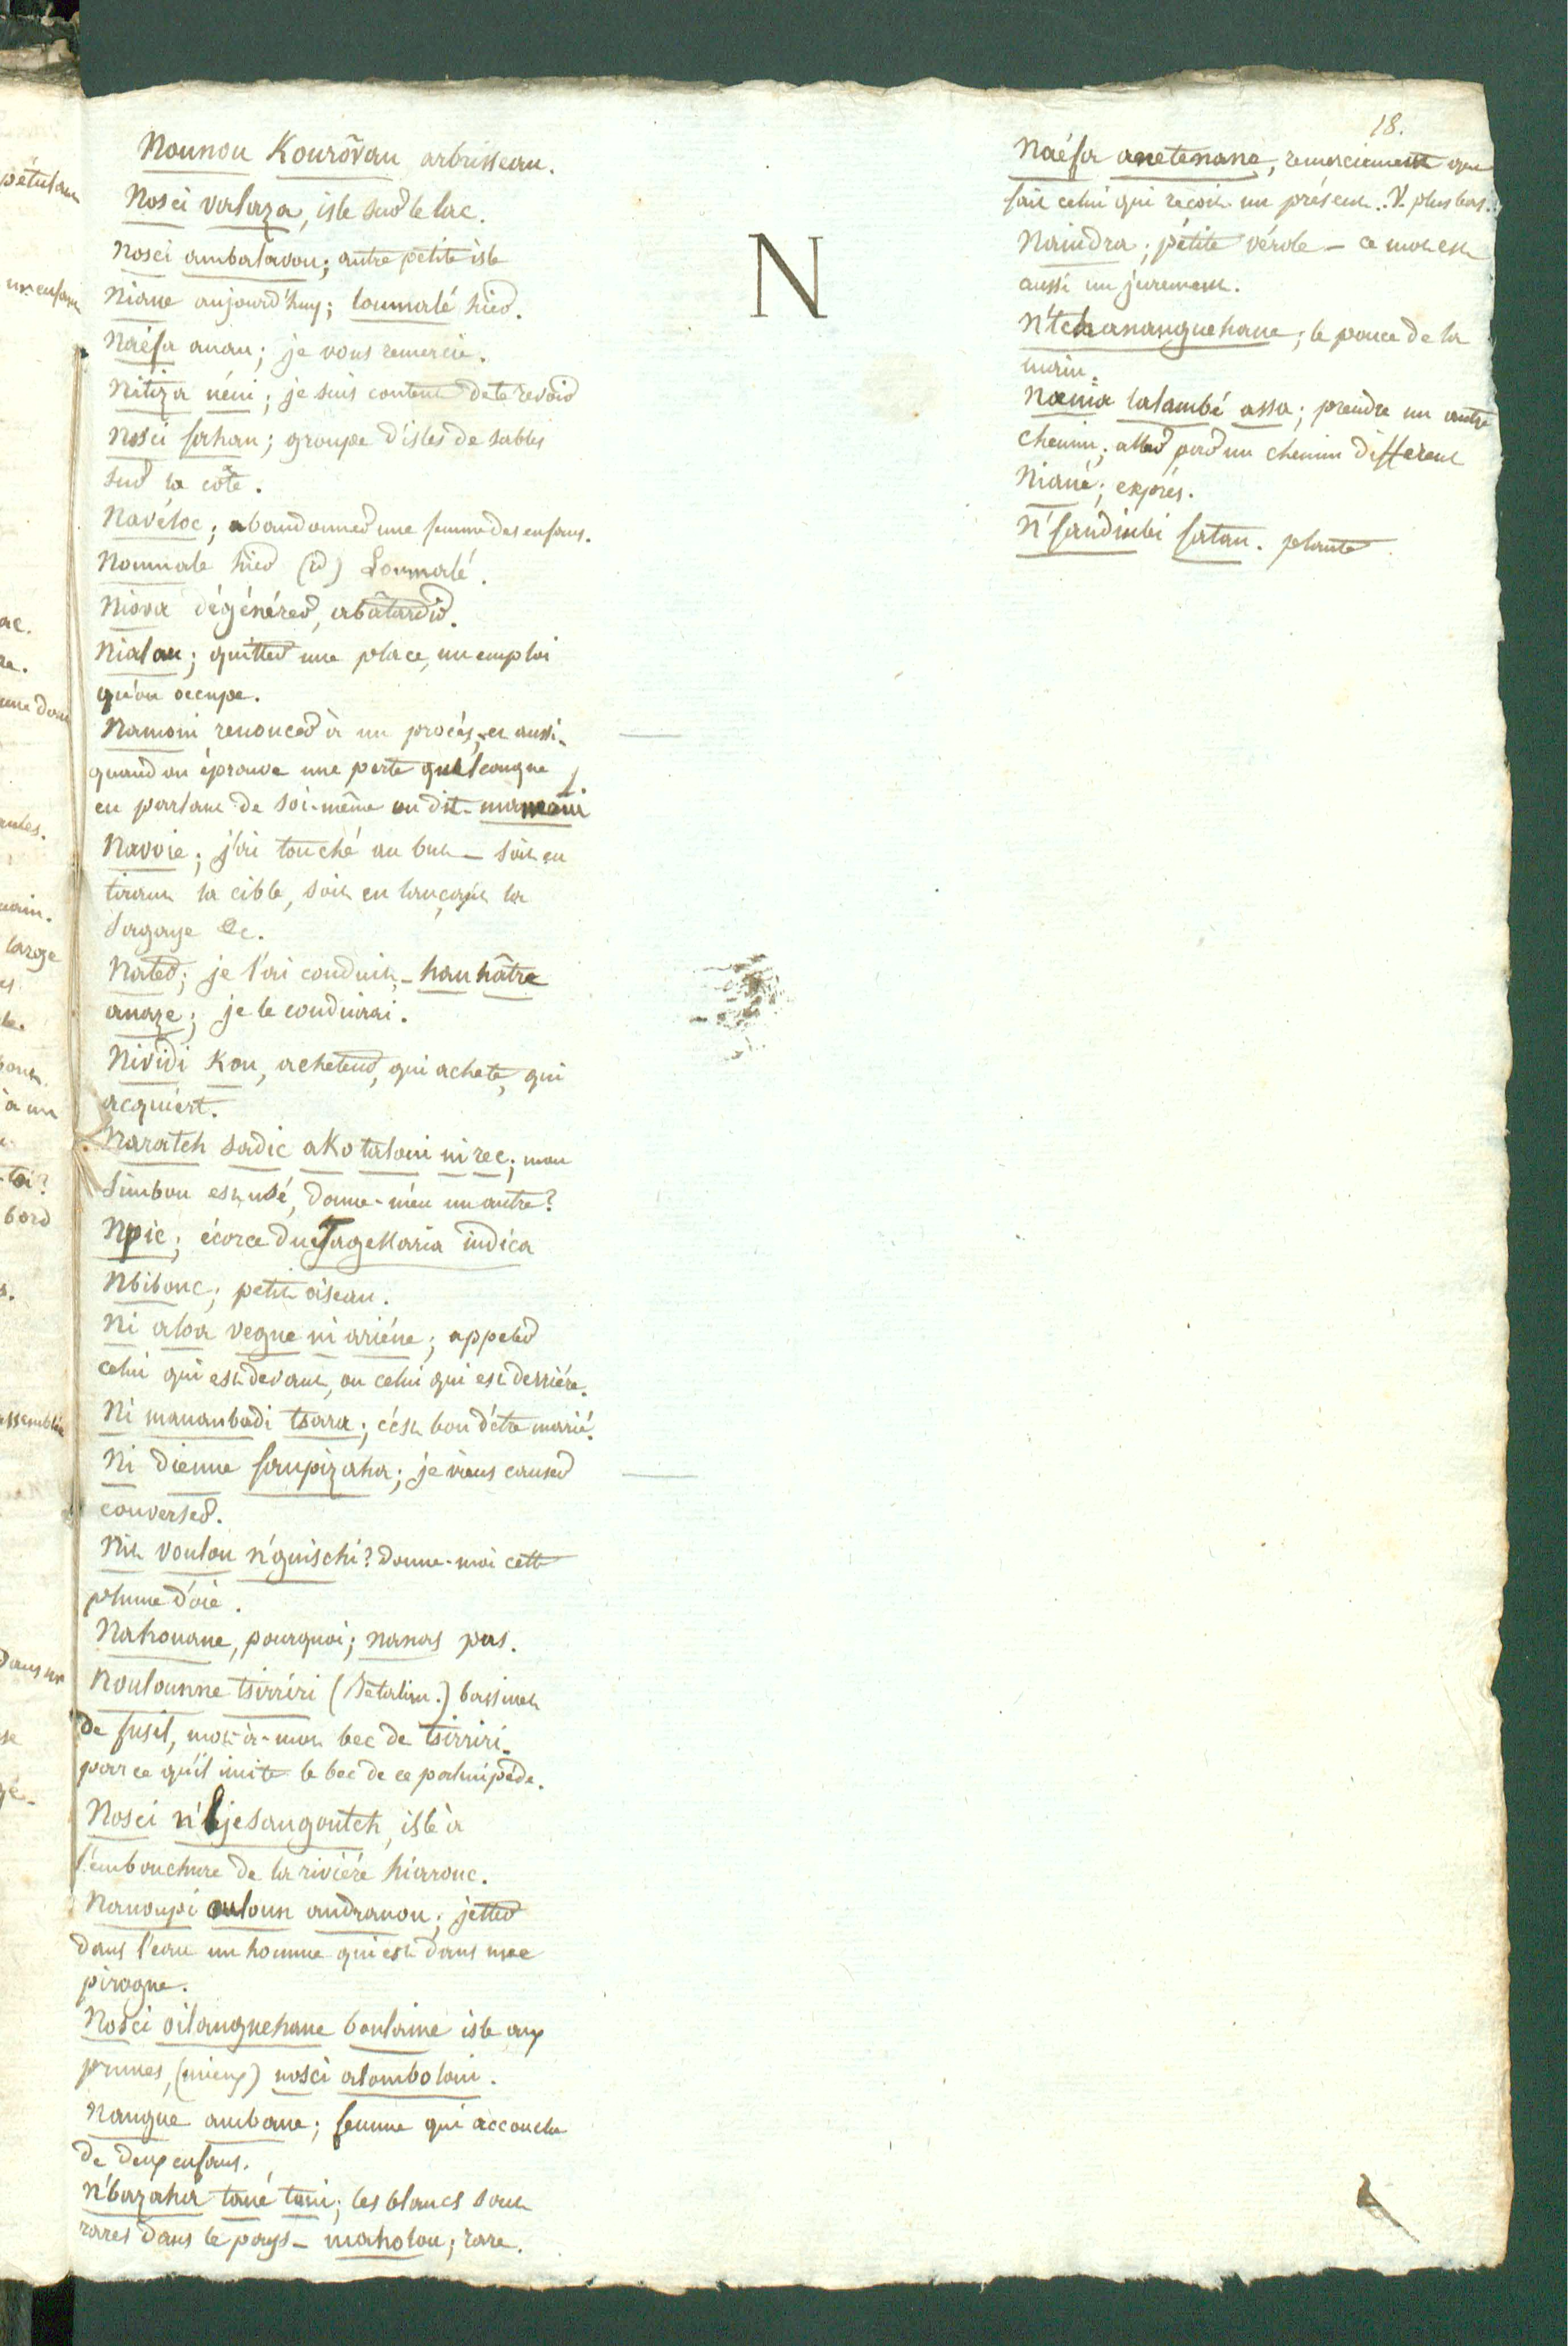 Nounou Kourovau arbrisseau.
Nosci valaza, isle sur le lac.
Nosci ambalavou; autre petite isle
Niane aujourd'huy; loumalé hier.
Naéfa anau; je vous remercie.
Nitiza néni; je suis content de te revoir
Nosci fahau; groupe d'isles de sables
sur la côte.
Navéloc; abandonner une femme des enfans.
Noumale hier (id) Loumalé.
Niova dégénérer, abâtardir.
Nialau; quitter une place, un emploi
qu'on occupe.
Namoni renoncer à un procès, et aussi
quand on éprouve une perte quelconque
en parlant de soi-même on dit
Navoie; j'ai touché au but – soit en
tirant la cible, soit en lançant la
Sagaye &c.
Nater; je l'ai conduit – hau hâtre
anaze; je le conduirai.
Nividi Kou, acheteur, qui achete, qui
acquiert.
Naratch sadic ako taloui ni rec; mon
Simbou est usé, donne-m'en un autre?
Npic; écorce du Tagellaria indica
Nbibouc; petit oiseau.
Ni aloa vegne ni ariéne; appeler
celui qui est devant, ou celui qui est derriére.
Ni manambadi tsara; c'est bon d'être marié.
Ni dienne faupizaha; je viens causer
converser.
Nit voulou n'guischi? donne-moi cette
plume d'oie.
Nahouane, pourquoi; nanas pas.
Nouloumne tsirriri (Bétalim.) bassinet
de fusil, mot-à-mot bec de tsirriri
parce qu'il imite le bec de ce palmipède.
Nosci n'bjesangoutch, isle à
l'embouchure de la riviére hiarouc.
Nanoupi ouloun andranou; jetter
dans l'eau un homme qui est dans une
pirogue.
Nosci oilanguehane boulaine isle aux
prunes, (mieux) nosci alambolou.
Nangue ambane; femme qui accouche
de deux enfans.
N'bazaha tané tani; les blancs sont
rares dans le pays – maholou; rare.
N
18.
Naéfa anetenane, remerciement que
fait celui qui reçoit un présent. V. plus bas.
Naindra; petite vérole – ce mot est
aussi un jurement.
N'tchananguehane; le pouce de la
main.
Nœnia lalambé assa; prendre un autre
chemin; aller par un chemin different
Niané; exprés.
N'fandiubi fatan. plante